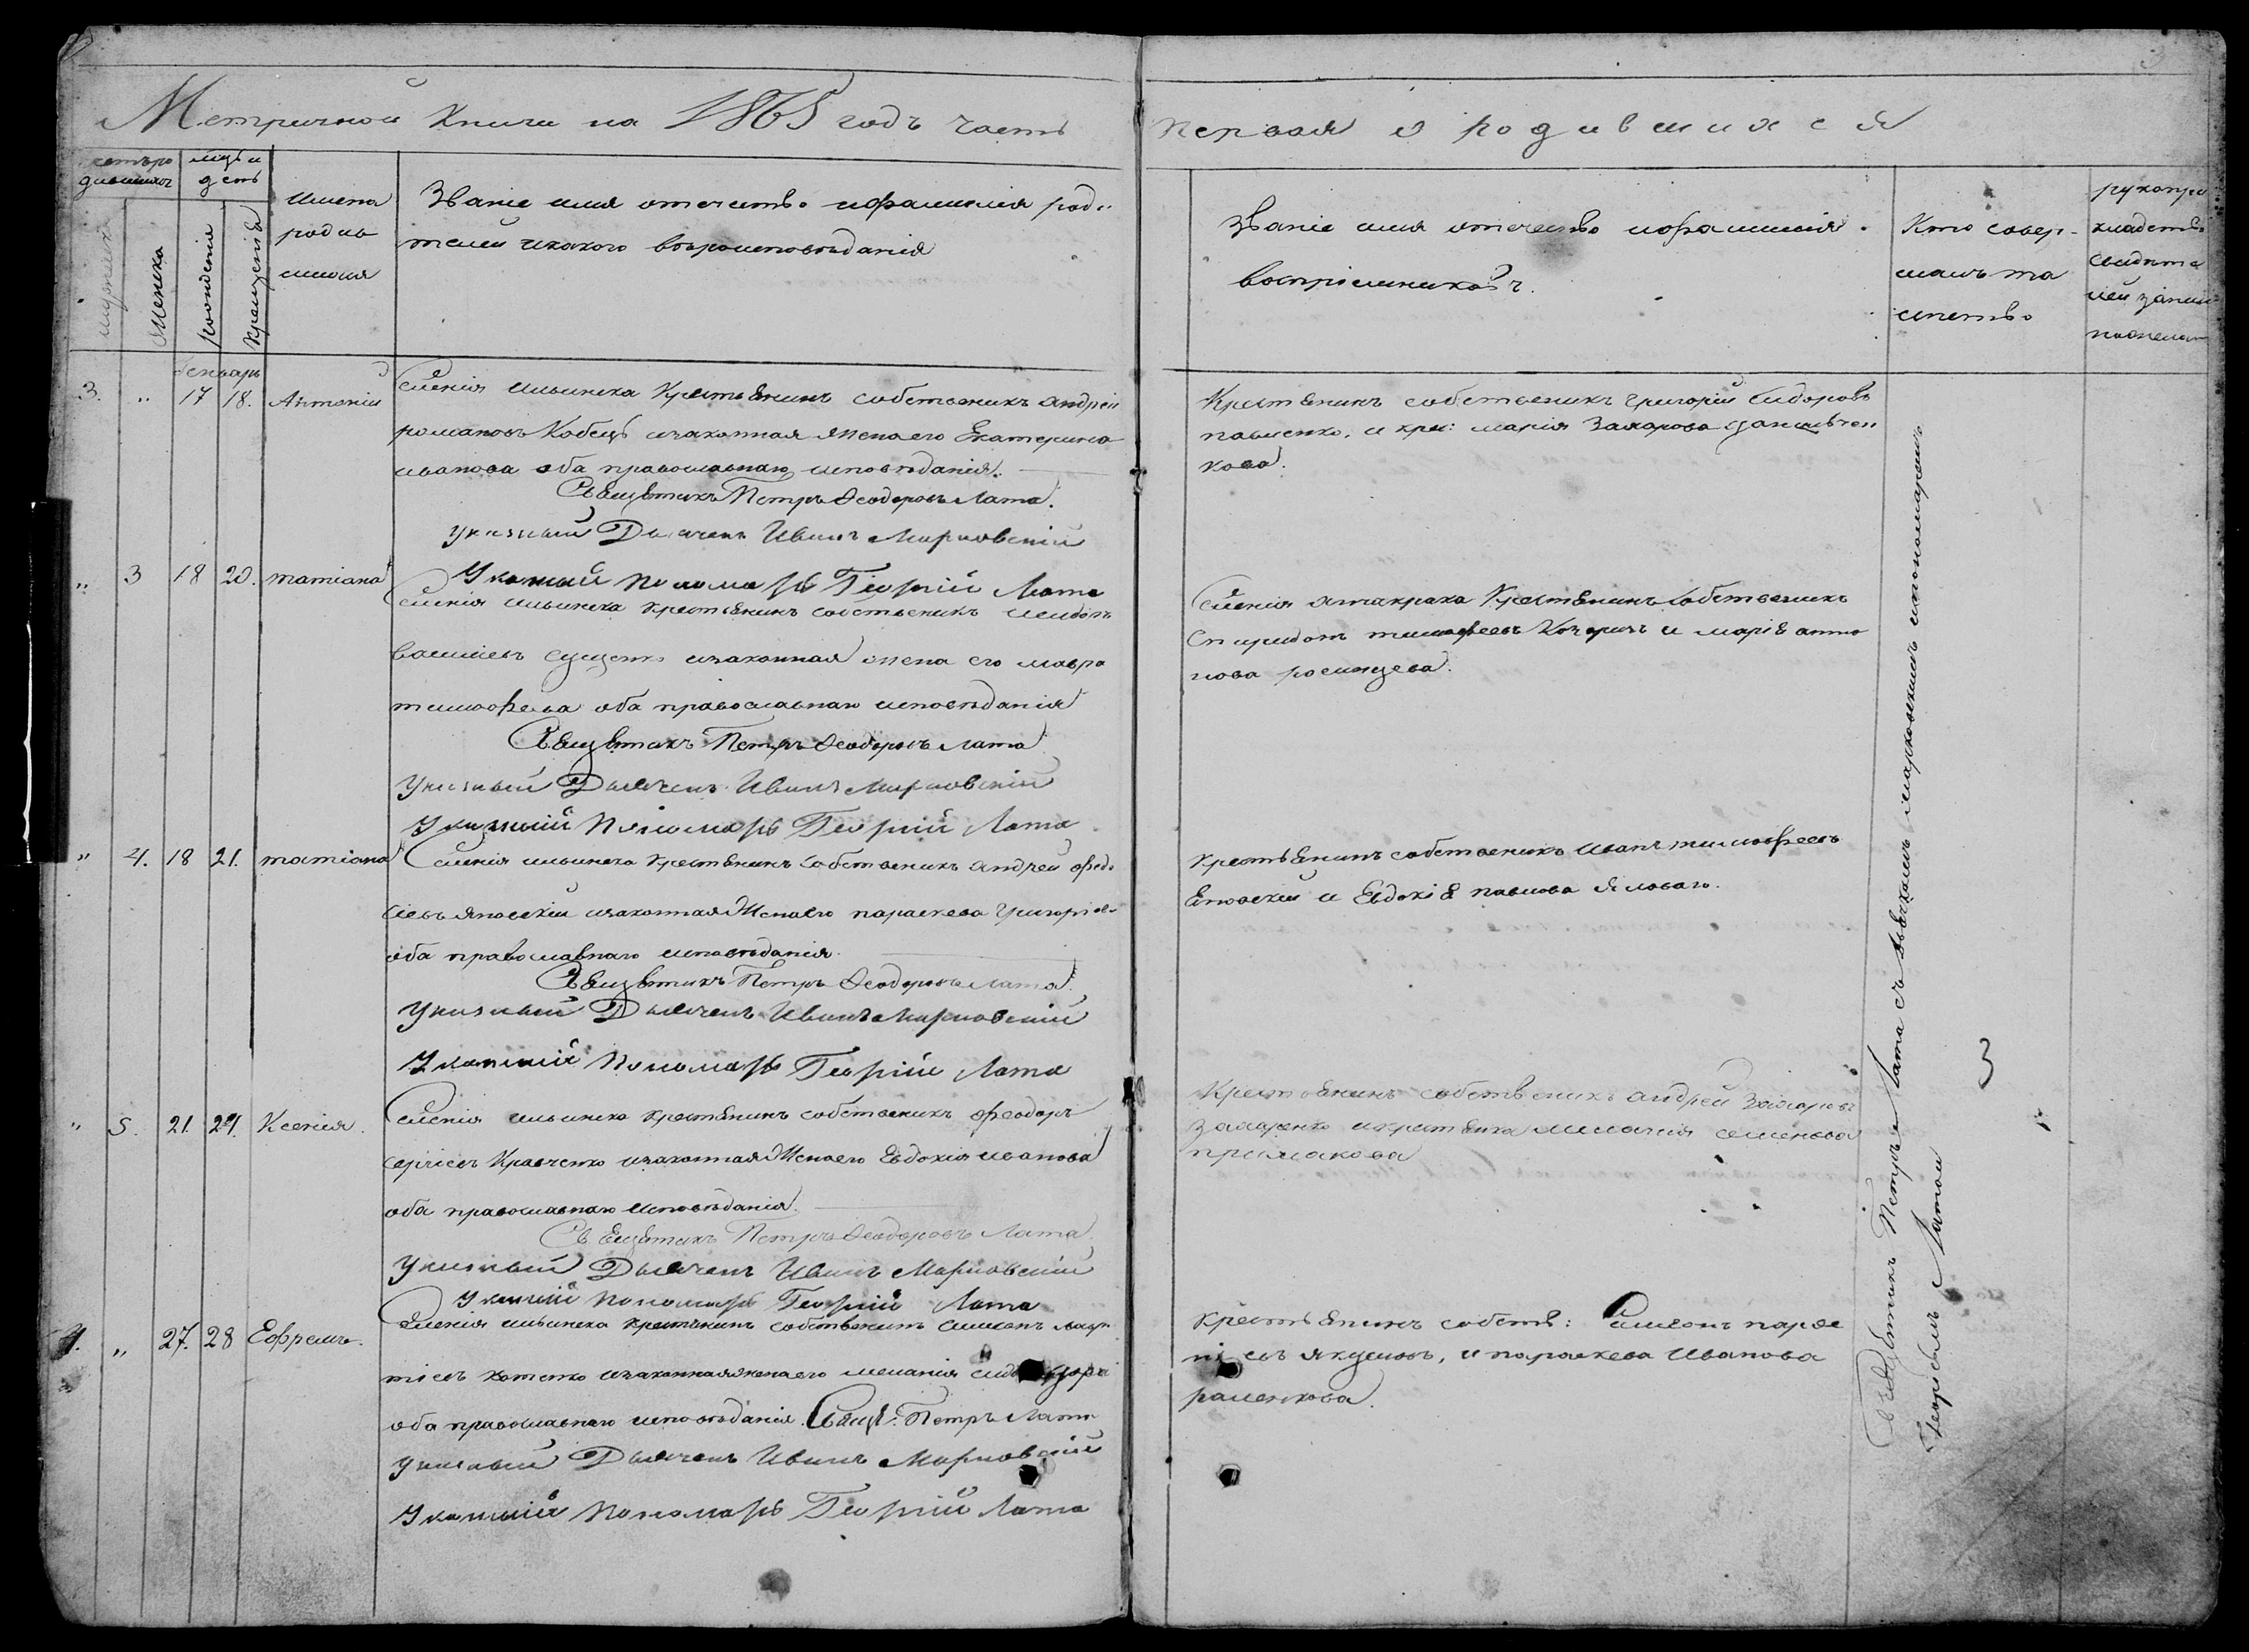 Метричной Книги на 1865 годъ часть
первая о родившихся
3
мужеска
женска
мцъ и
день
рожденія
крещенія
имена
родив
шихся
Званіе имя отечество и фамилія роди
телей и какого вероисповѣданія
Званіе имя отечество и фамилія
воспріемниковъ.
Кто совер-
шалъ та
инство
рукопри
кладство
свидете
лей записи
по желан
Генварь
3. " 17 18. Антоній
Селенія ильинска Крестьянинъ собственикъ андрей
романовъ Кобецъ изаконная жена его Екатерина
иванова оба православнаго исповѣданія.
Священикъ Петръ Ѳеодоровъ Лата.
Указный Дьячекъ Иванъ Марковскій
Указный Пономарь Георгій Лата
Крестьянинъ собственикъ григорій Сидоровъ
павленко, и кре: марія Захарова
кова.
" 3 18 20. татіана
Селенія ильинска крестьянинъ собственикъ
василіевъ сущенко изаконная жена его мавра
тимофеева оба православнаго исповѣданія
Священикъ Петръ Ѳеодоровъ Лата
Указный Дьячекъ Иванъ Марковскій
Указный Пономарь Георгій Лата
Селенія Крестьянинъ собственикъ
Спиридонъ тимофеевъ и марія анто
нова росинцева.
" 4. 18 21. татіана
Селенія ильинска крестьянинъ собственикъ андрей федо
сіевъ яновскій изаконная Жена его параскева григоріев
оба православнаго исповѣданія.
Священикъ Петръ Ѳеодоровъ Лата.
Указный Дьячекъ Иванъ Марковскій
Указный Пономарь Георгій Лата
крестьянинъ собственикъ иванъ тимофеевъ
Еновскій и Евдокія павлова Яловаго.
" 5. 21. 24. Ксенія.
Селенія ильинска крестьянинъ собственикъ феодоръ
сергіевъ Кравченко изаконная Жена его Евдокія иванова
оба православнаго исповѣданія.
Священикъ Петръ Ѳеодоровъ Лата
Указный Дьячекъ Иванъ Марковскій
Указный Пономарь Георгій Лата
Крестьянинъ собственикъ андрей Захаровъ
Захаренко и крестьянка меланія семенова
примакова
4. " 27. 28 Ефремъ.
Селенія ильинска крестьянинъ собственикъ
тіевъ котенко изаконная жена его меланія
оба православнаго исповѣданія. Свящ: Петръ Лата
Указный Дьячекъ Иванъ Марковскій
Указный Пономарь Георгій Лата
крестьянинъ собств: Симеонъ парѳе
ніевъ якушовъ, и параскева Иванова
раменкова.
Священикъ Петръ Лата съ дьячкомъ марковскимъ и пономаремъ
Георгіемъ Латою
3